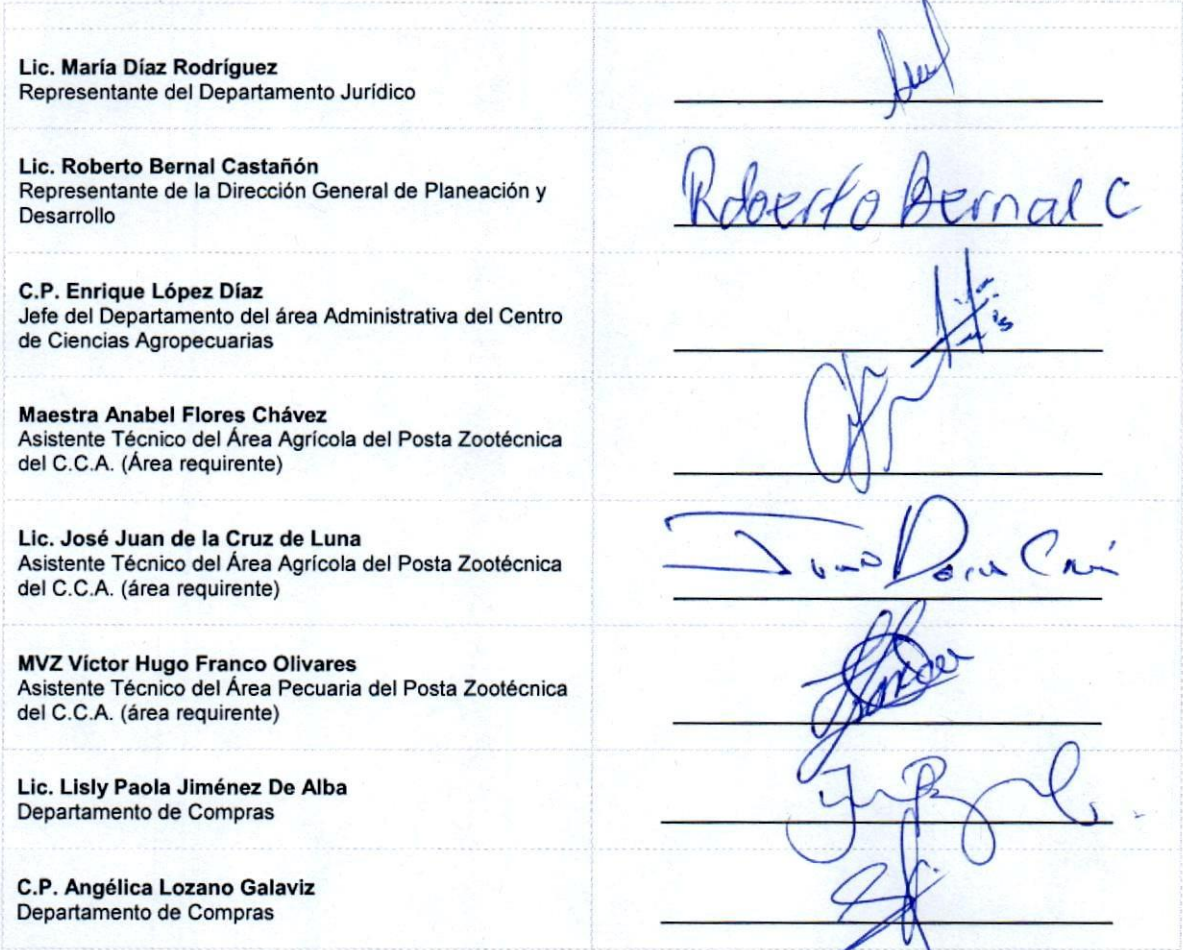 Lic. María Díaz Rodríguez
Representante del Departamento Jurídico
Lic. Roberto Bernal Castañón
Representante de la Dirección General de Planeación y
Desarrollo
Roberto Bernal C
C.P. Enrique López Díaz
Jefe del Departamento del área Administrativa del Centro
de Ciencias Agropecuarias
Maestra Anabel Flores Chávez
Asistente Técnico del Área Agrícola del Posta Zootécnica
del C.C.A. (Área requirente)
Lic. José Juan de la Cruz de Luna
Asistente Técnico del Área Agrícola del Posta Zootécnica
del C.C.A. (área requirente)
MVZ Víctor Hugo Franco Olivares
Asistente Técnico del Área Pecuaria del Posta Zootécnica
del C.C.A. (área requirente)
Lic. Lisly Paola Jiménez De Alba
Departamento de Compras
C.P. Angélica Lozano Galaviz
Departamento de Compras